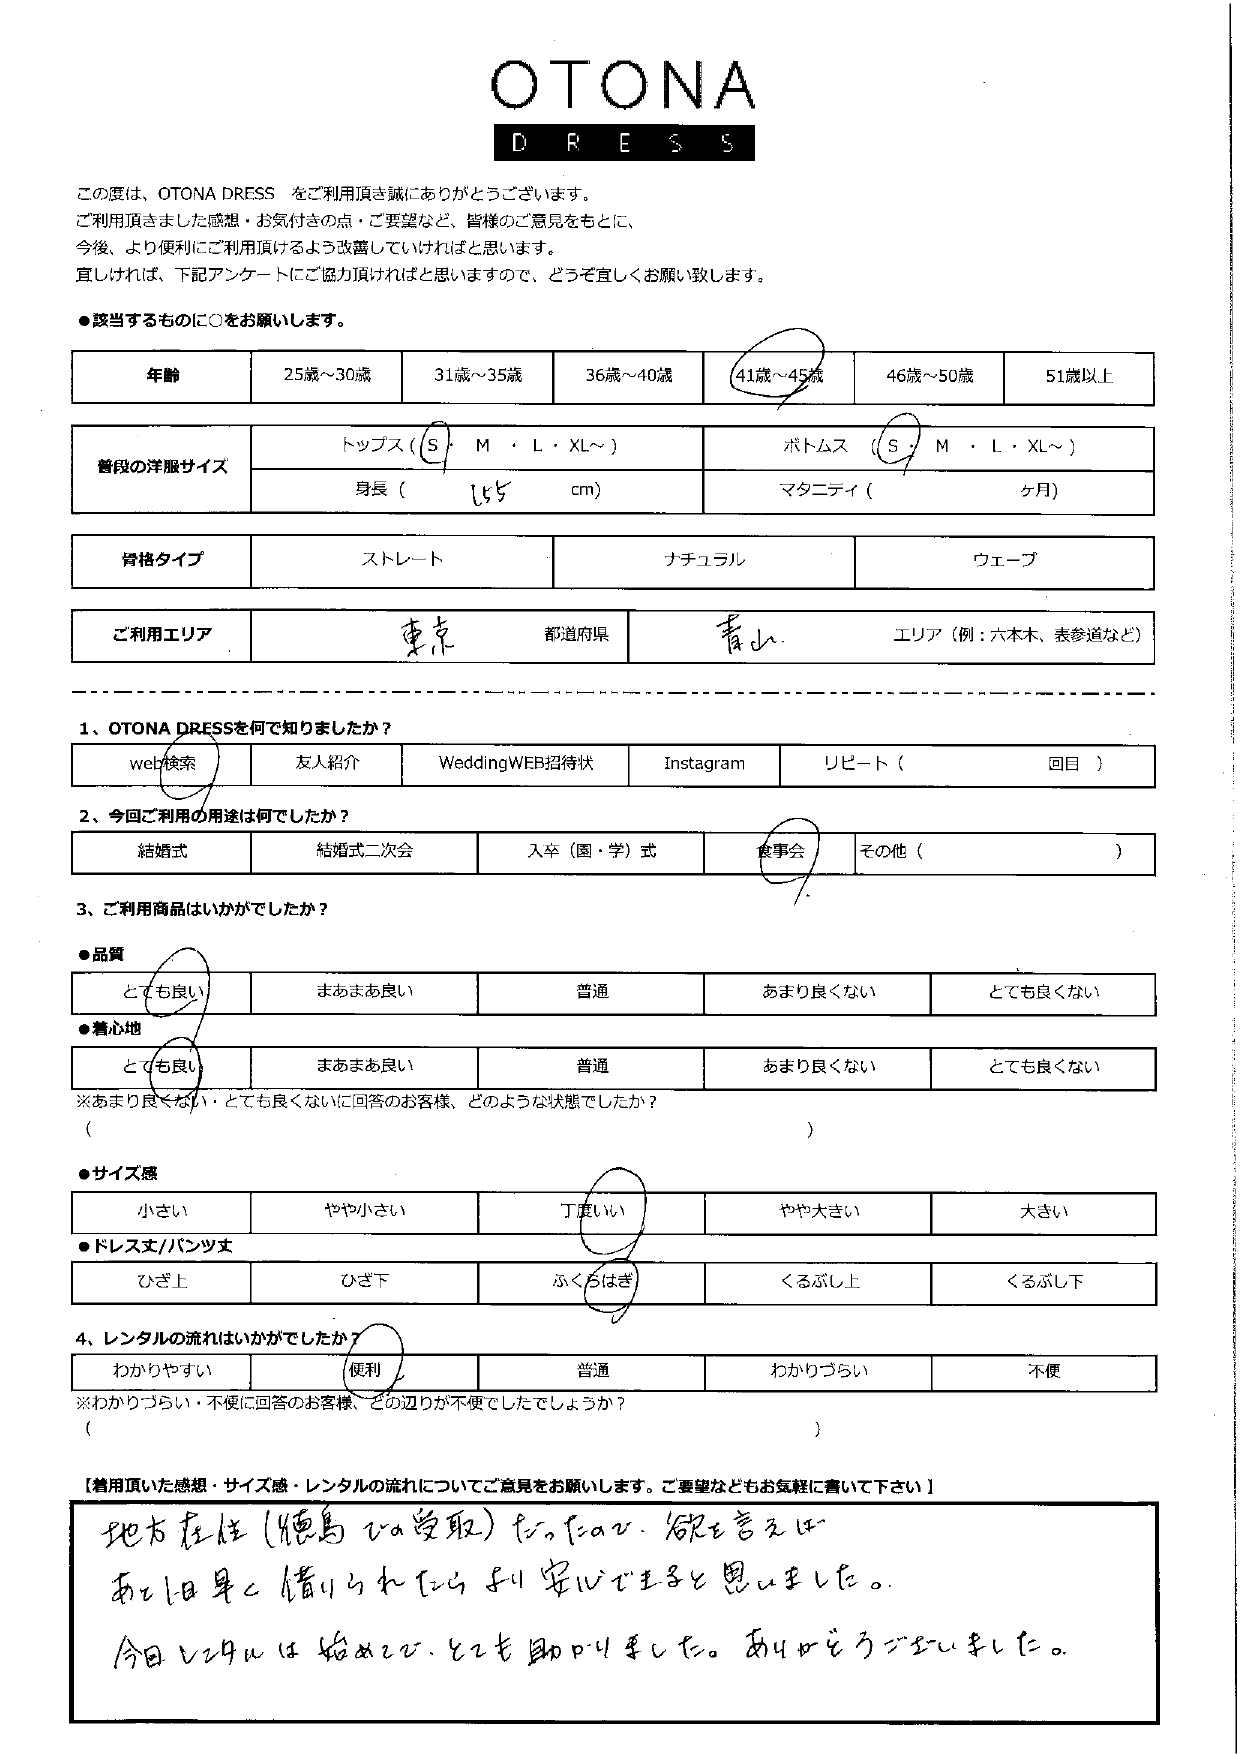 OTONA
DRESS
この度は、OTONA DRESS をご利用頂き誠にありがとうございます。
ご利用頂きました感想・お気付きの点・ご要望など、皆様のご意見をもとに、
今後、より便利にご利用頂けるよう改善していければと思います。
宜しければ、下記アンケートにご協力頂ければと思いますので、どうぞ宜しくお願い致します。
●該当するものに○をお願いします。
年齢 25歳～30歳 31歳～35歳 36歳～40歳 41歳～45歳 46歳～50歳 51歳以上
普段の洋服サイズ トップス ( S ・ M ・ L ・ XL～ ) ボトムス ( S ・ M ・ L ・ XL～ )
身長 ( 155 cm) マタニティ ( ヶ月)
骨格タイプ ストレート ナチュラル ウェーブ
ご利用エリア 東京 都道府県 青山 エリア（例：六本木、表参道など）
1、OTONA DRESSを何で知りましたか？
web検索 友人紹介 WeddingWEB招待状 Instagram リピート（ 回目 ）
2、今回ご利用の用途は何でしたか？
結婚式 結婚式二次会 入卒（園・学）式 食事会 その他（ ）
3、ご利用商品はいかがでしたか？
●品質
とても良い まあまあ良い 普通 あまり良くない とても良くない
●着心地
とても良い まあまあ良い 普通 あまり良くない とても良くない
※あまり良くない・とても良くないに回答のお客様、どのような状態でしたか？
( )
●サイズ感
小さい やや小さい 丁度いい やや大きい 大きい
●ドレス丈/パンツ丈
ひざ上 ひざ下 ふくらはぎ くるぶし上 くるぶし下
4、レンタルの流れはいかがでしたか？
わかりやすい 便利 普通 わかりづらい 不便
※わかりづらい・不便に回答のお客様、どの辺りが不便でしたでしょうか？
( )
【着用頂いた感想・サイズ感・レンタルの流れについてご意見をお願いします。ご要望などもお気軽に書いて下さい】
地方在住（徳島での受取）だったので、欲を言えば
あと1日早く借りられたらより安心できると思いました。
今回レンタルは始めてで、とても助かりました。ありがとうございました。